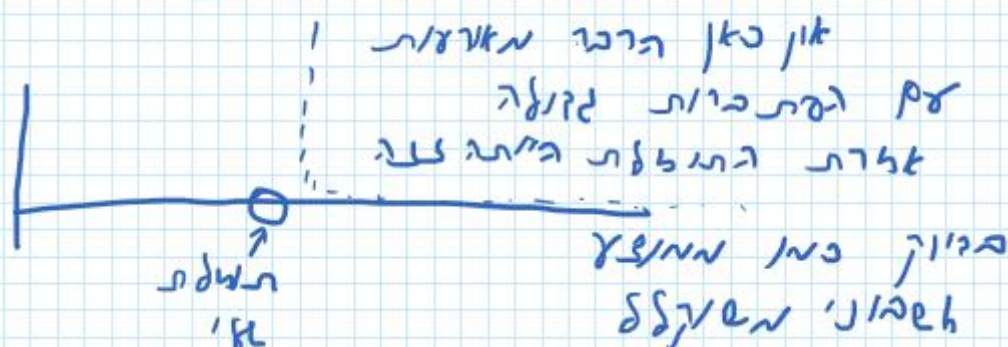 אין כאן הרבה מאורעות
עם הסתברות גדולה
אחרת התוחלת הייתה זזה
בדיוק כמו ממוצע
חשבוני משוקלל
תוחלת